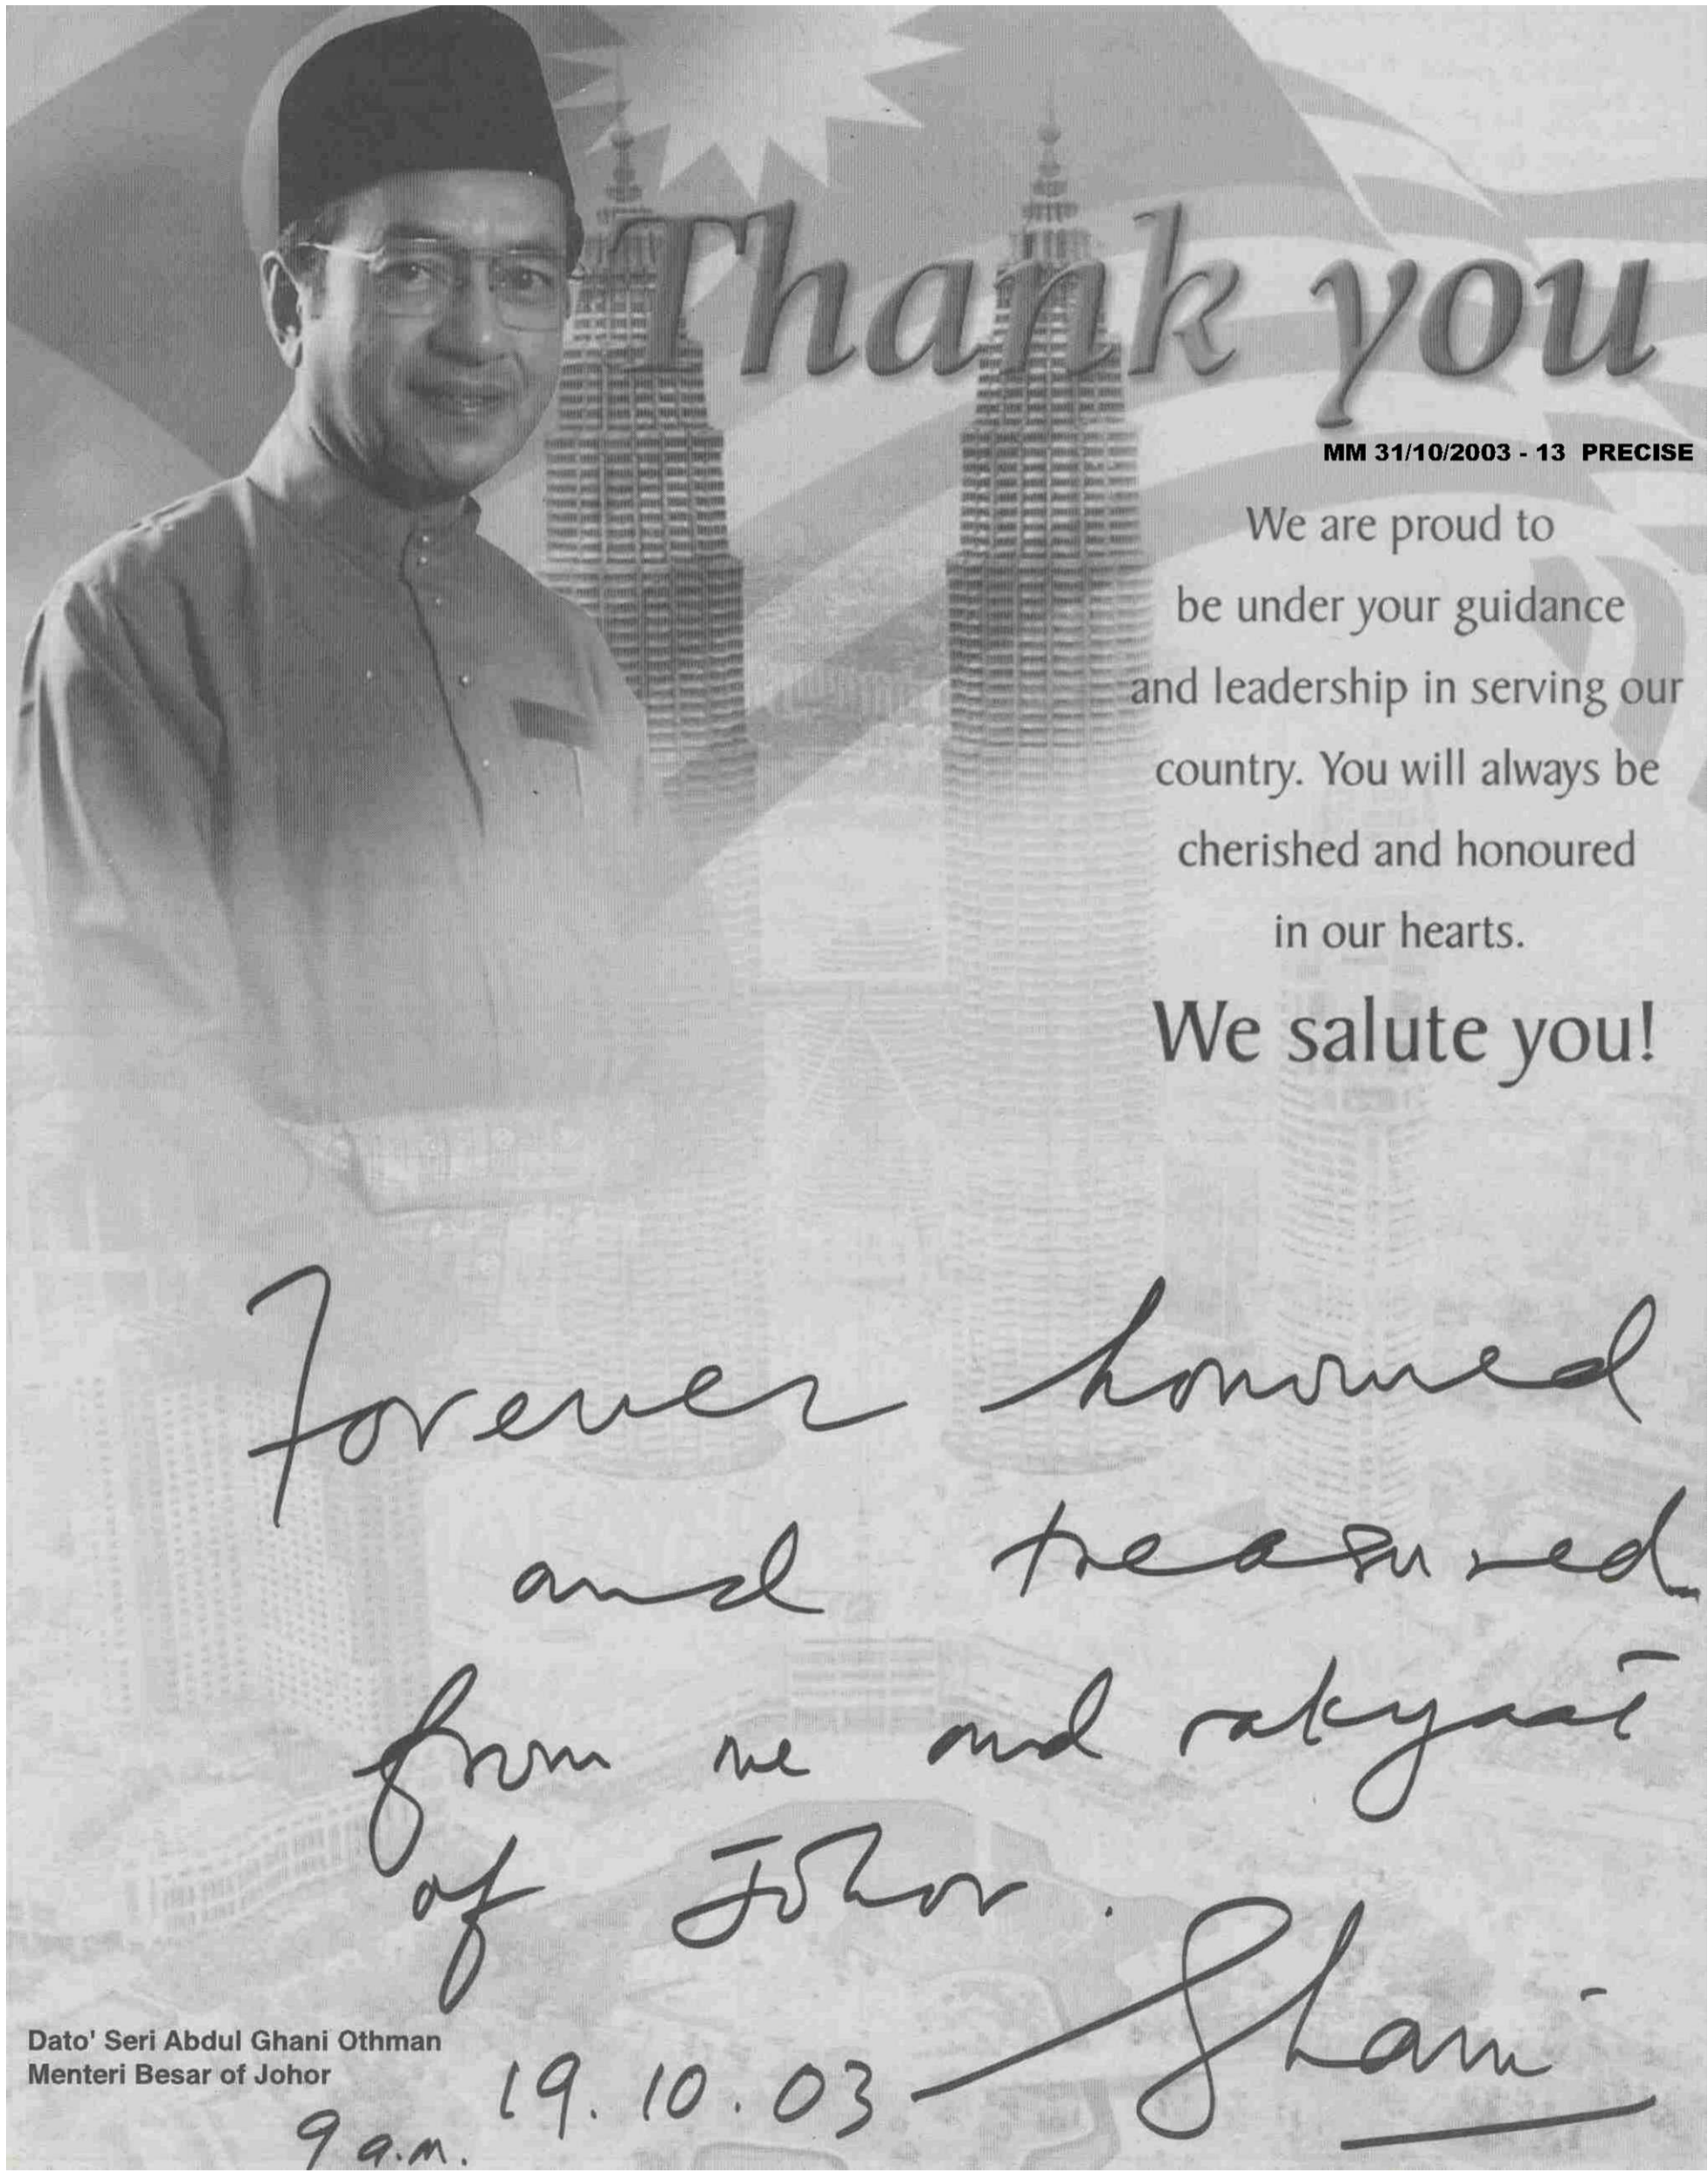 Thank you
MM 31/10/2003 - 13 PRECISE
We are proud to
be under your guidance
and leadership in serving our
country. You will always be
cherished and honoured
in our hearts.
We salute you!
Forever honoured
and treasured
from me and rakyaat
of Johor.
Ghani
Dato' Seri Abdul Ghani Othman
Menteri Besar of Johor
19.10.03
9 a.m.